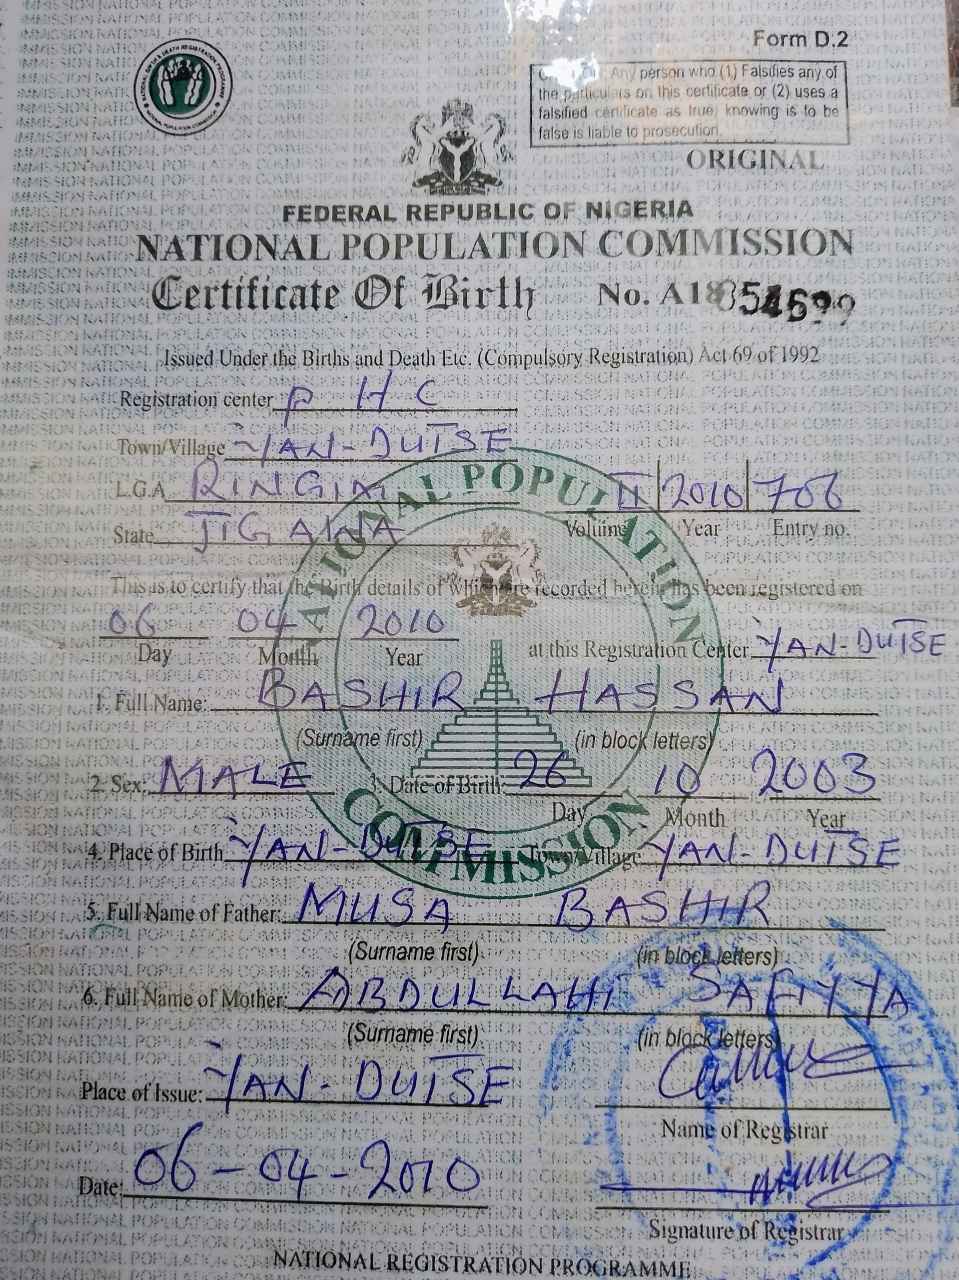 Form D.2
Any person who (1) Falsifies any of
the particulars on this certificate or (2) uses a
falsified certificate as true, knowing is to be
false is liable to prosecution.
ORIGINAL
FEDERAL REPUBLIC OF NIGERIA
NATIONAL POPULATION COMMISSION
Certificate Of Birth No. A18354699
Issued Under the Births and Death Etc. (Compulsory Registration) Act 69 of 1992
Registration center P H C
Town/Village 'YAN-DUTSE
L.G.A RINGIM II 2010 706
State JIGAWA Volume Year Entry no.
This is to certify that the Birth details of which are recorded herein has been registered on
06 04 2010
Day Month Year at this Registration Center 'YAN-DUTSE
1. Full Name: BASHIR HASSAN
(Surname first) (in block letters)
2. Sex: MALE 3. Date of Birth: 26 10 2003
Day Month Year
4. Place of Birth 'YAN-DUTSE Town/Village 'YAN-DUTSE
5. Full Name of Father: MUSA BASHIR
(Surname first) (in block letters)
6. Full Name of Mother: ABDULLAHI SAFIYYA
(Surname first) (in block letters)
Place of Issue: 'YAN-DUTSE
Name of Registrar
Date: 06-04-2010
Signature of Registrar
NATIONAL REGISTRATION PROGRAMME
NATIONAL POPULATION COMMISSION